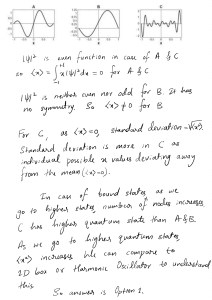 A B C
|ψ|² is even function in case of A & C
so <x> = ∫ x|ψ|² dx = 0 for A & C
|ψ|² is neither even nor odd for B. It has
no symmetry. So <x> ≠ 0 for B
For C, as <x> = 0, standard deviation = √<x²>.
Standard deviation is more in C as
individual possible x values deviating away
from the mean (<x> = 0).
In case of bound states as we
go to higher states number of nodes increases
C has higher quantum state than A & B.
As we go to higher quantum states
<x²> increases. We can compare to
1D box or Harmonic Oscillator to understand
this.
So answer is Option 1.